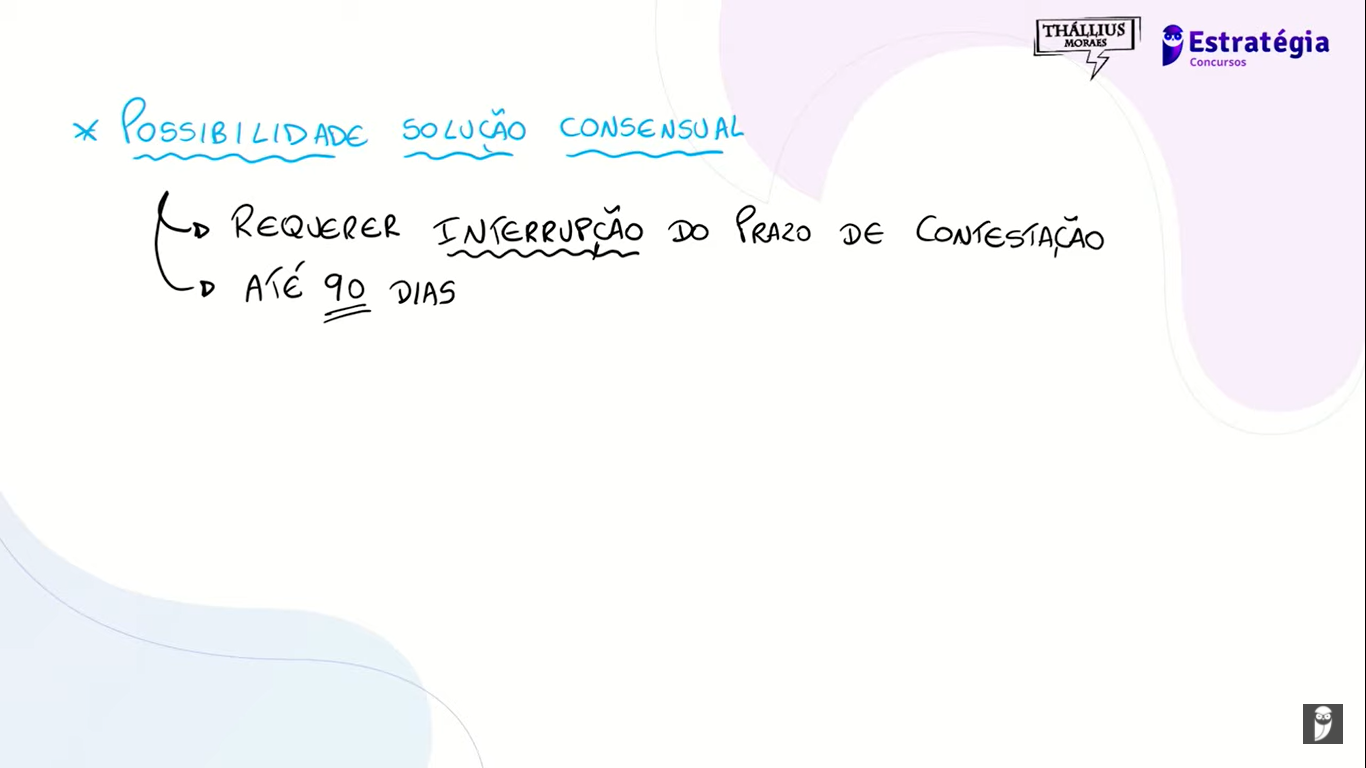 THÁLLIUS
MORAES
Estratégia
Concursos
* POSSIBILIDADE SOLUÇÃO CONSENSUAL
REQUERER INTERRUPÇÃO DO PRAZO DE CONTESTAÇÃO
ATÉ 90 DIAS